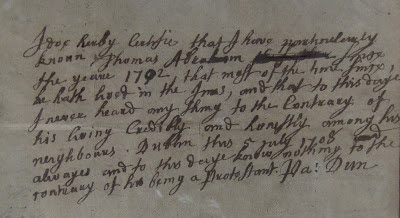 I doe hereby Certifie that I have particulearly
known Thomas Abraham from
the yeare 1702 that most of the time since,
he hath lived in the Inns, and that to this daye
I never heard any thing to the Contrary of
his living Credibly and honestly among his
neighbours. Dublin this 5 July 1708 and
alwayes and to this daye know nothing to the
contrary of his being a protestant. Pa: Dun